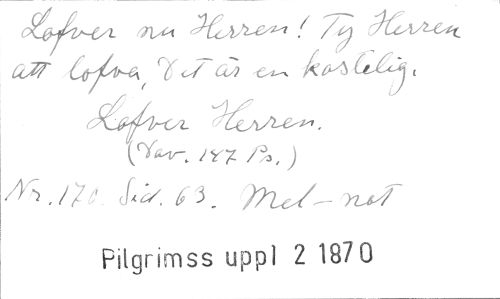 Lofver nu Herren! Ty Herren
att lofva, Det är en kostelig.
Lofver Herren.
(Dav. 147 Ps.)
Nr. 170. Sid. 63. Mel-not
Pilgrimss uppl 2 1870